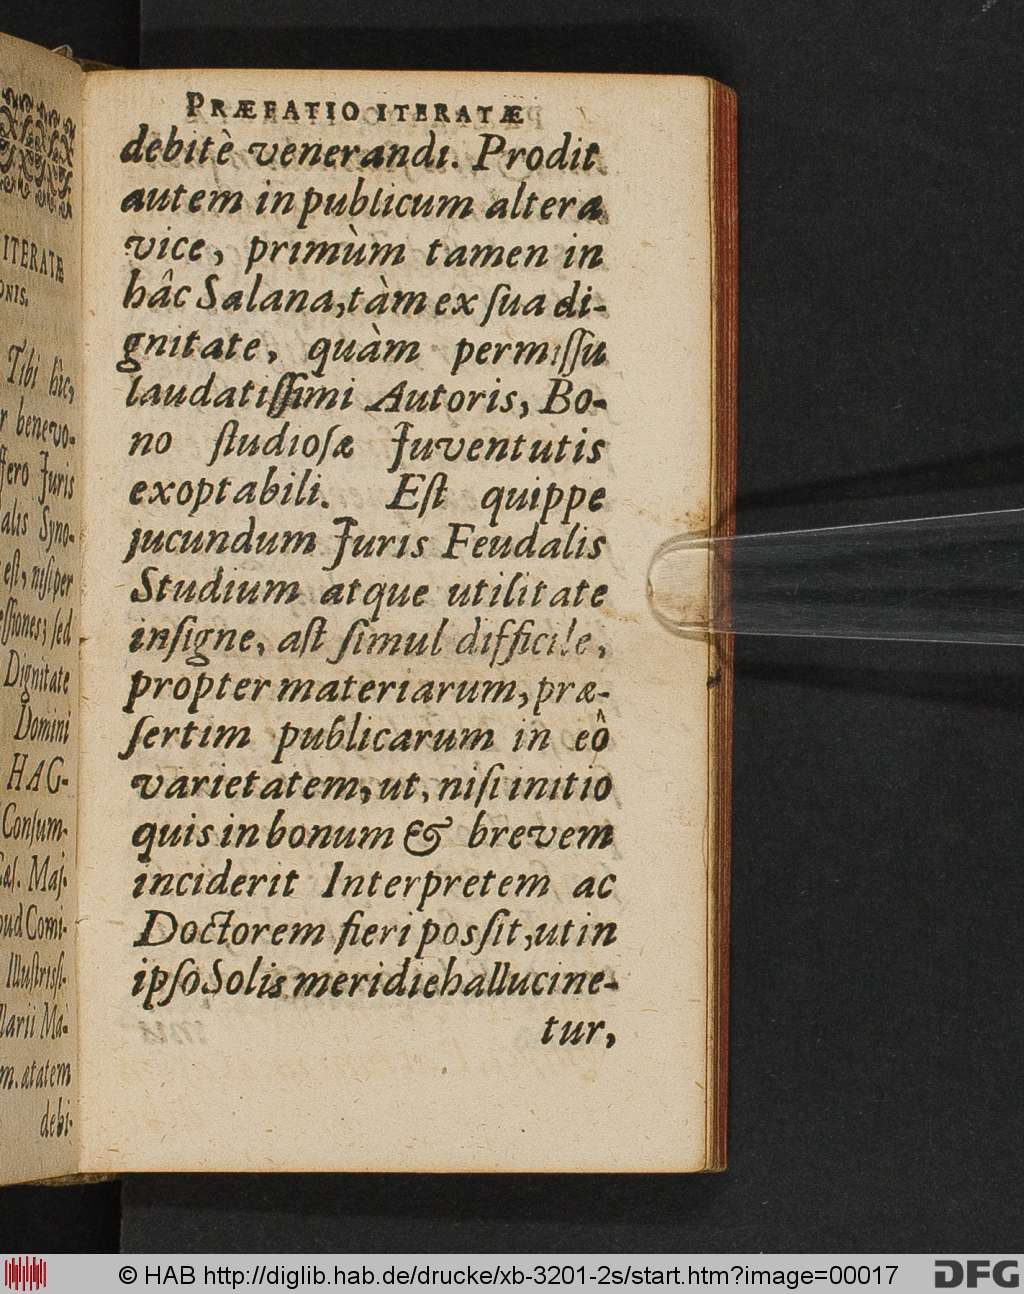 ITERATÆ
ONIS.
Tibi hîc,
r benevo-
ffero Juris
alis Syno-
est, nisi per
essiones; sed
Dignitate
Domini
HAG-
Consum-
Cæs. Maj.
pud Comi-
Illustriss.
llarii Ma-
m. atatem
debi-
PRÆFATIO ITERATÆ
debitè venerandi. Prodit
autem in publicum altera
vice, primùm tamen in
hâc Salana, tàm ex ſua di-
gnitate, quàm permiſſu
laudatiſſimi Autoris, Bo-
no ſtudioſæ Juventutis
exoptabili. Eſt quippe
jucundum Juris Feudalis
Studium atque utilitate
inſigne, aſt ſimul difficile,
propter materiarum, præ-
ſertim publicarum in eô
varietatem, ut, niſi initio
quis in bonum & brevem
inciderit Interpretem ac
Doctorem fieri posſit, ut in
ipſo Solis meridie hallucine-
tur,
© HAB http://diglib.hab.de/drucke/xb-3201-2s/start.htm?image=00017
DFG